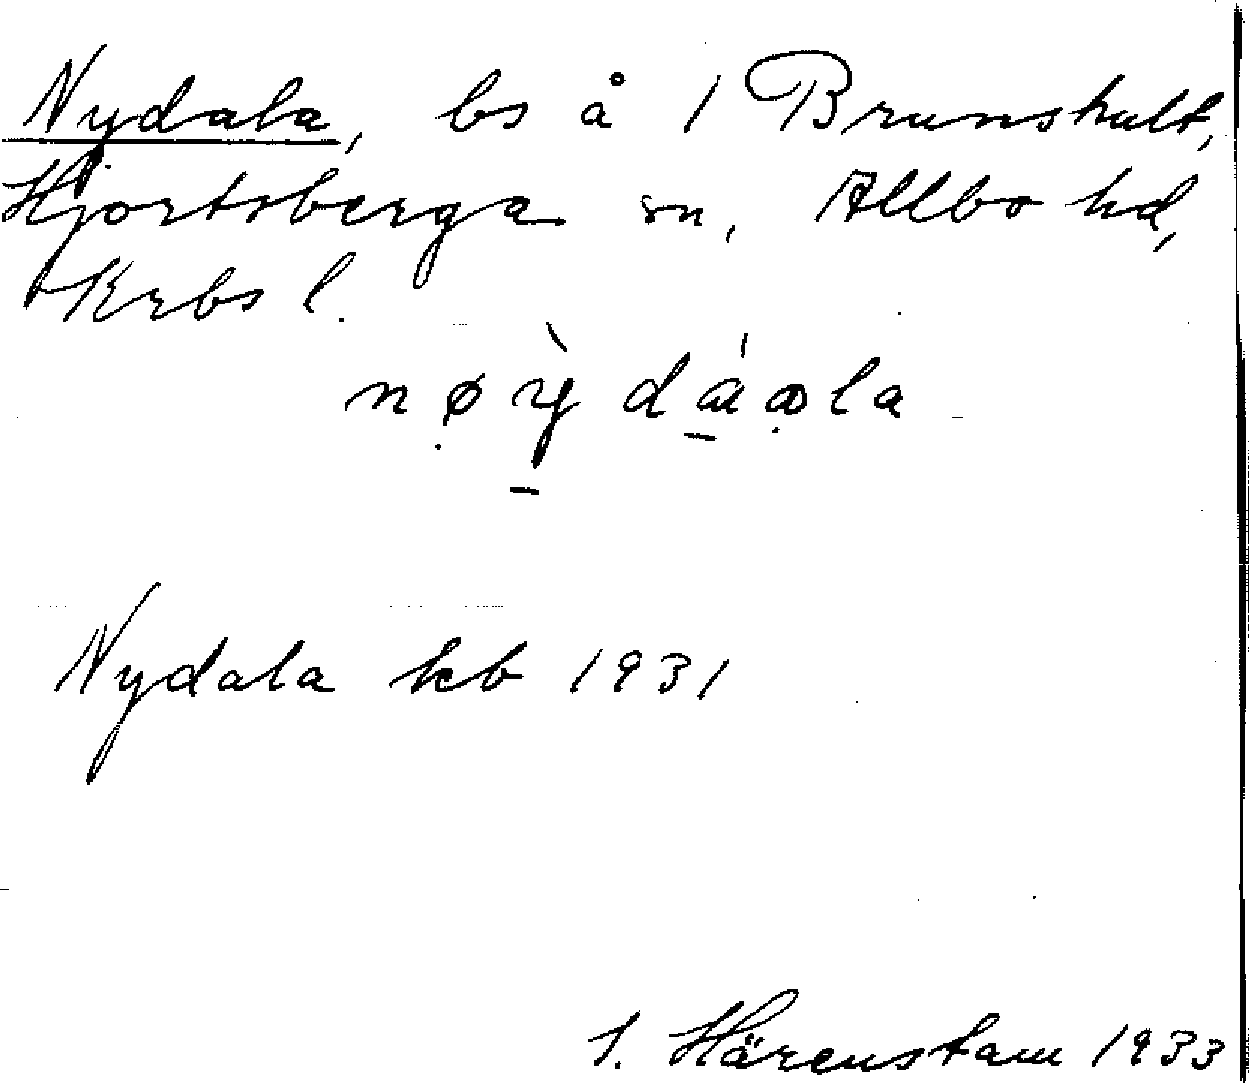 Nydala, bs å 1 Brunshult,
Hjortsberga sn, Allbo hd,
Krbs l.
Nydala kb 1931
S. Härenstam 1933